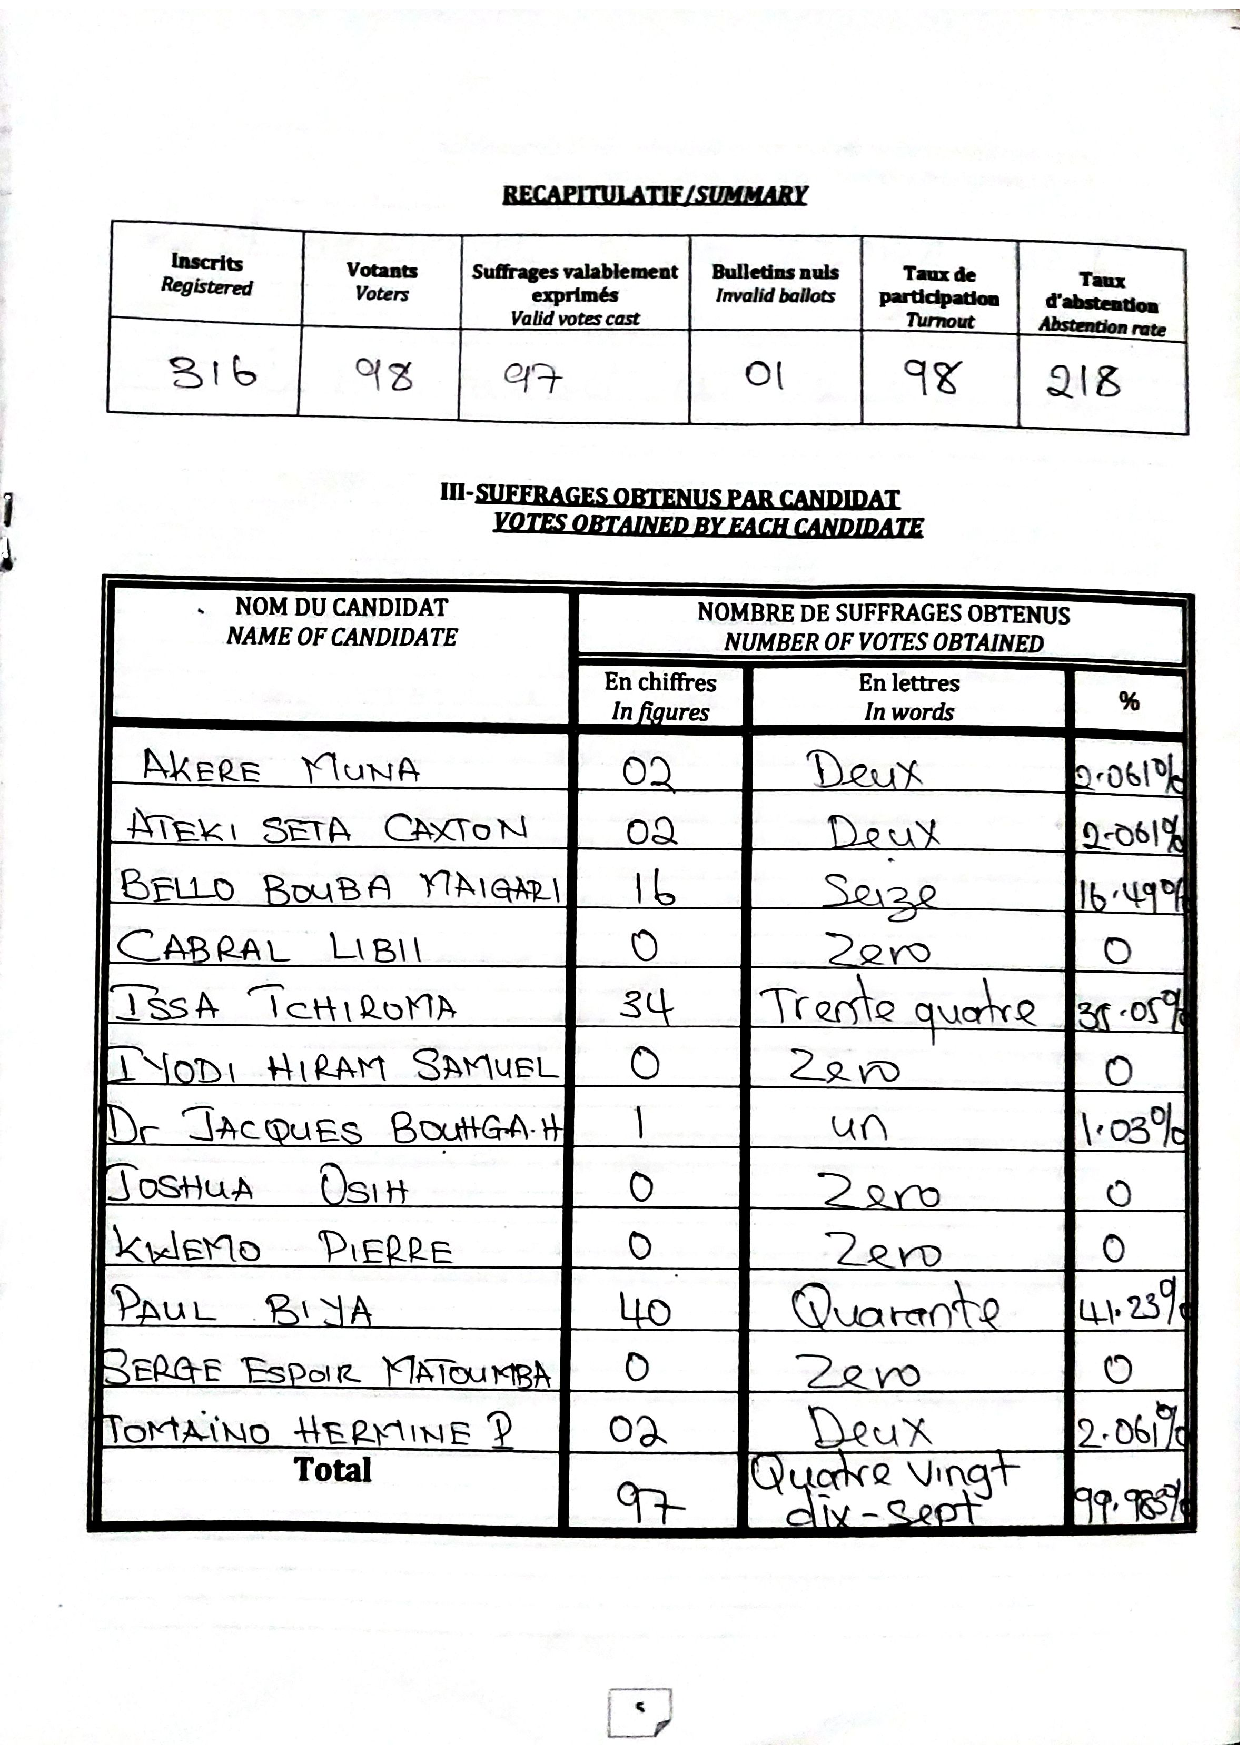 RECAPITULATIF/SUMMARY
Inscrits
Registered
Votants
Voters
Suffrages valablement
exprimés
Valid votes cast
Bulletins nuls
Invalid ballots
Taux de
participation
Turnout
Taux
d'abstention
Abstention rate
316 98 97 01 98 218
III-SUFFRAGES OBTENUS PAR CANDIDAT
VOTES OBTAINED BY EACH CANDIDATE
NOM DU CANDIDAT
NAME OF CANDIDATE
NOMBRE DE SUFFRAGES OBTENUS
NUMBER OF VOTES OBTAINED
En chiffres
In figures
En lettres
In words
%
AKERE MUNA 02 Deux 2.061%
ATEKI SETA CAXTON 02 Deux 2.061%
BELLO BOUBA MAIGARI 16 Seize 16.49%
CABRAL LIBII 0 Zero 0
ISSA TCHIROMA 34 Trente quatre 35.05%
IYODI HIRAM SAMUEL 0 Zero 0
Dr JACQUES BOUHGA-H 1 un 1.03%
JOSHUA OSIH 0 Zero 0
KWEMO PIERRE 0 Zero 0
PAUL BIYA 40 Quarante 41.23%
SERGE ESPOIR MATOUMBA 0 Zero 0
TOMAÏNO HERMINE P 02 Deux 2.061%
Total 97 Quatre vingt
dix-sept 99.983%
5